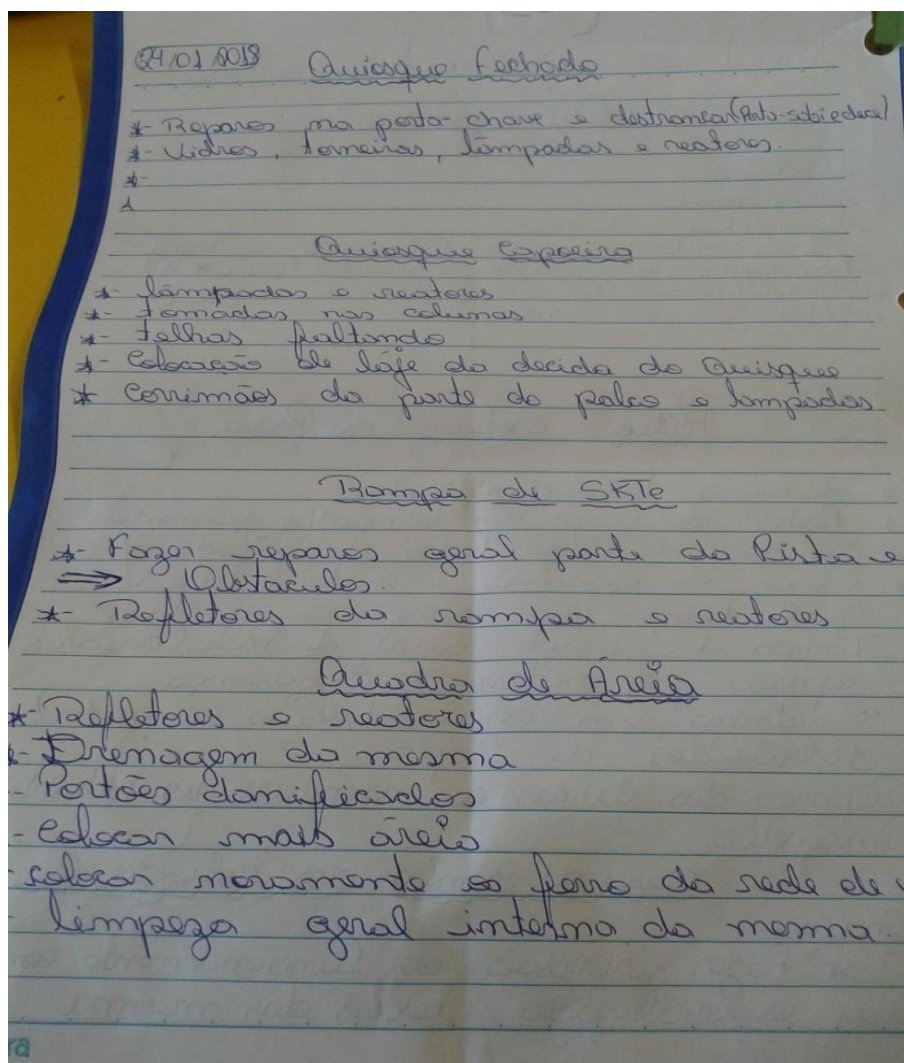 24/01/2018 Quiosque Fechado
*- Reparos na porta-chave e destrancar (Pato-sobi e dece)
*- Vidros, torneiras, lâmpadas e reatores.
*-
Quiosque Capoeira
*- lâmpadas e reatores
*- tomadas nas colunas
*- telhas faltando
*- Colocação de láje da decida do Quisque
* Corrimãos da parte do palco e lampadas
Rampa de SKTe
*- Fazer reparos geral parte da Pista e
⇒ Obstaculos.
*- Refletores da rampa e reatores
Quadra de Áreia
*- Refletores e reatores
*- Drenagem da mesma
- Portões danificados
- Colocar mais áreia
- colocar novamente o ferro da rede de
- limpeza geral interna da mesma.
ra